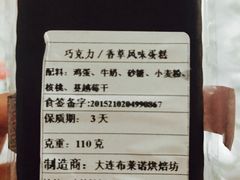 巧克力/香草风味蛋糕
配料：鸡蛋、牛奶、砂糖、小麦粉、
核桃、蔓越莓干
食签备字:2015210204990867
保质期：3天
克重：110克
制造商：大连布莱诺烘焙坊